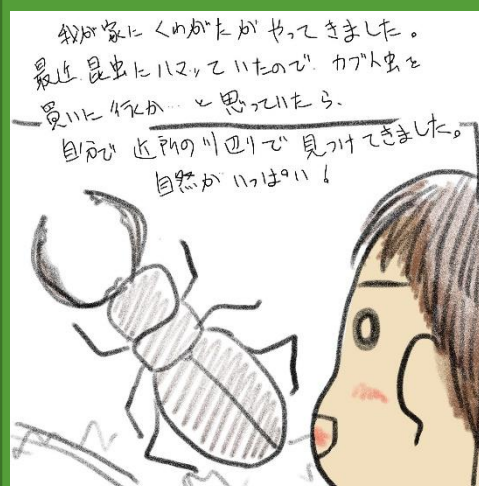 我が家に くわがたが やってきました。
最近 昆虫に ハマッていたので カブト虫を
買いに 行くか… と 思っていたら、
自分で 近所の川辺りで 見つけてきました。
自然が いっぱい!